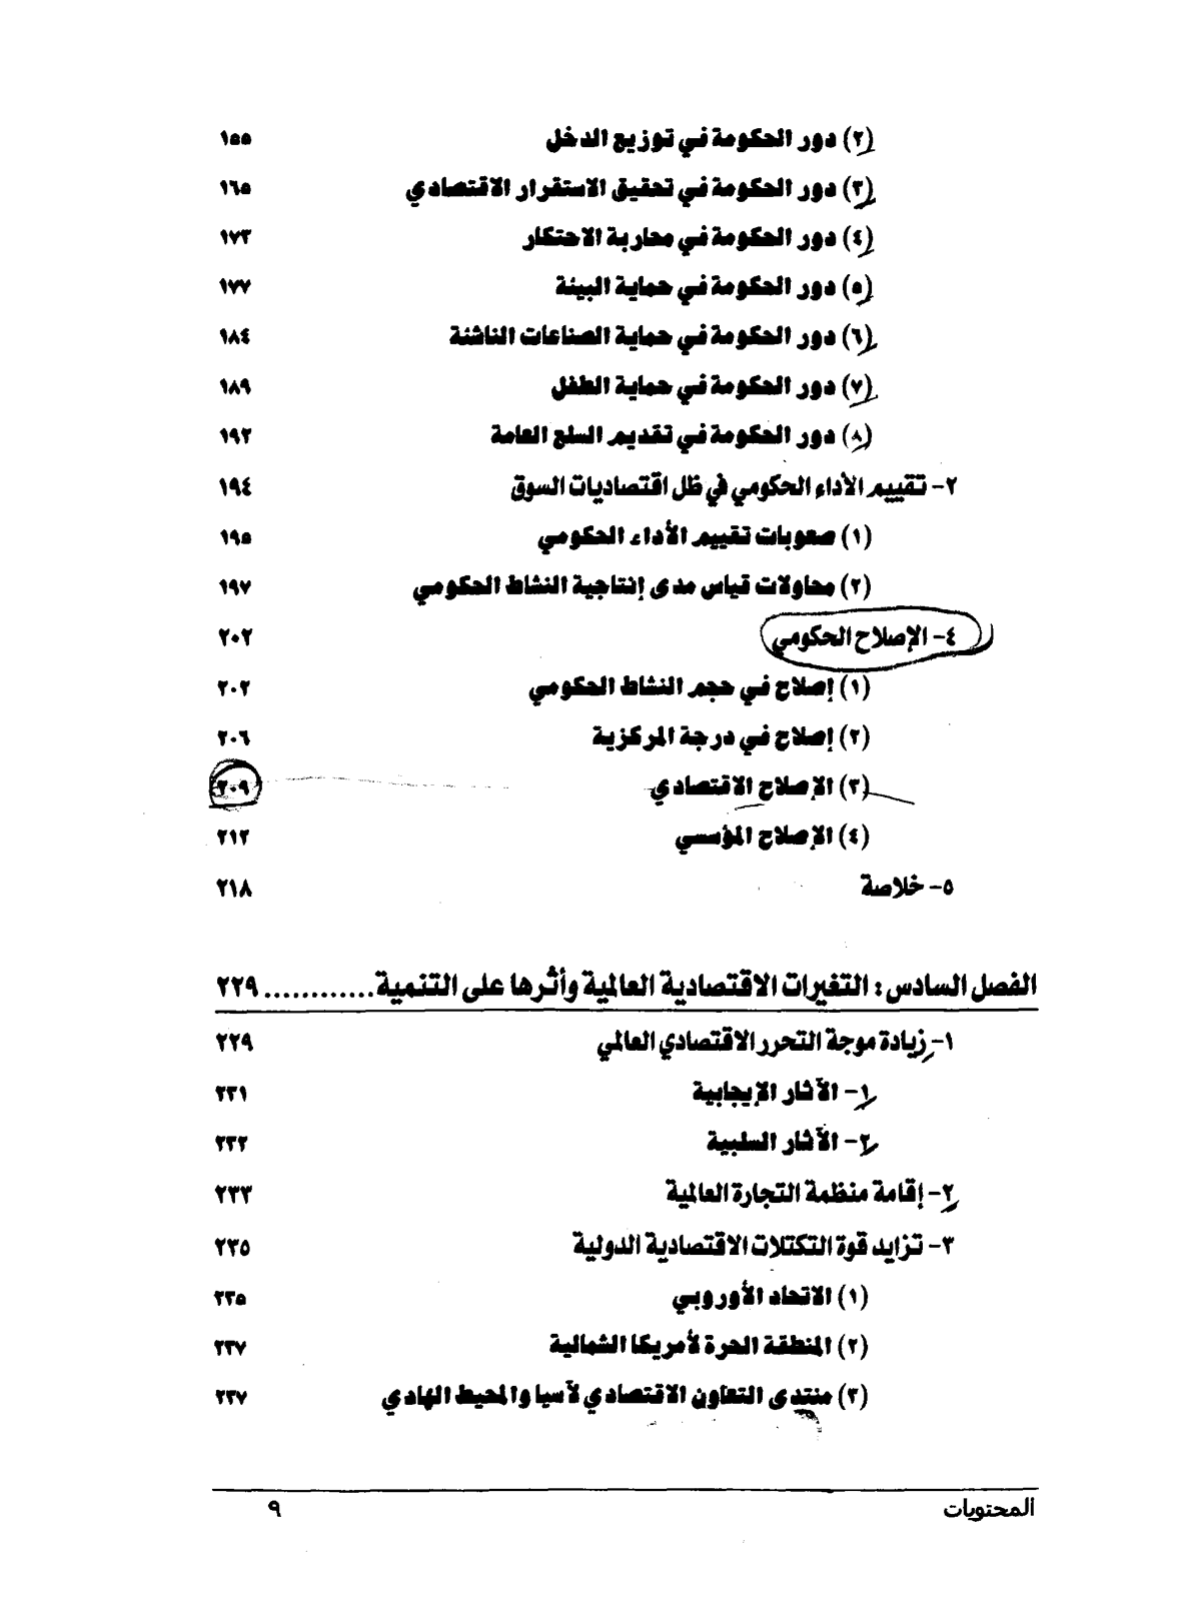 (٢) دور الحكومة في توزيع الدخل ١٥٥
(٣) دور الحكومة في تحقيق الاستقرار الاقتصادي ١٦٥
(٤) دور الحكومة في محاربة الاحتكار ١٧٣
(٥) دور الحكومة في حماية البيئة ١٧٧
(٦) دور الحكومة في حماية الصناعات الناشئة ١٨٤
(٧) دور الحكومة في حماية الطفل ١٨٩
(٨) دور الحكومة في تقديم السلع العامة ١٩٢
٢- تقييم الأداء الحكومي في ظل اقتصاديات السوق ١٩٤
(١) صعوبات تقييم الأداء الحكومي ١٩٥
(٢) محاولات قياس مدى إنتاجية النشاط الحكومي ١٩٧
٤- الإصلاح الحكومي ٢٠٢
(١) إصلاح في حجم النشاط الحكومي ٢٠٢
(٢) إصلاح في درجة المركزية ٢٠٦
(٣) الإصلاح الاقتصادي ٢٠٩
(٤) الإصلاح المؤسسي ٢١٢
٥- خلاصة ٢١٨
الفصل السادس: التغيرات الاقتصادية العالمية وأثرها على التنمية ............ ٢٢٩
١- زيادة موجة التحرر الاقتصادي العالمي ٢٢٩
١- الآثار الإيجابية ٢٣١
٢- الآثار السلبية ٢٣٢
٢- إقامة منظمة التجارة العالمية ٢٣٣
٣- تزايد قوة التكتلات الاقتصادية الدولية ٢٣٥
(١) الاتحاد الأوروبي ٢٣٥
(٢) المنطقة الحرة لأمريكا الشمالية ٢٣٧
(٣) منتدى التعاون الاقتصادي لآسيا والمحيط الهادي ٢٣٧
المحتويات ٩